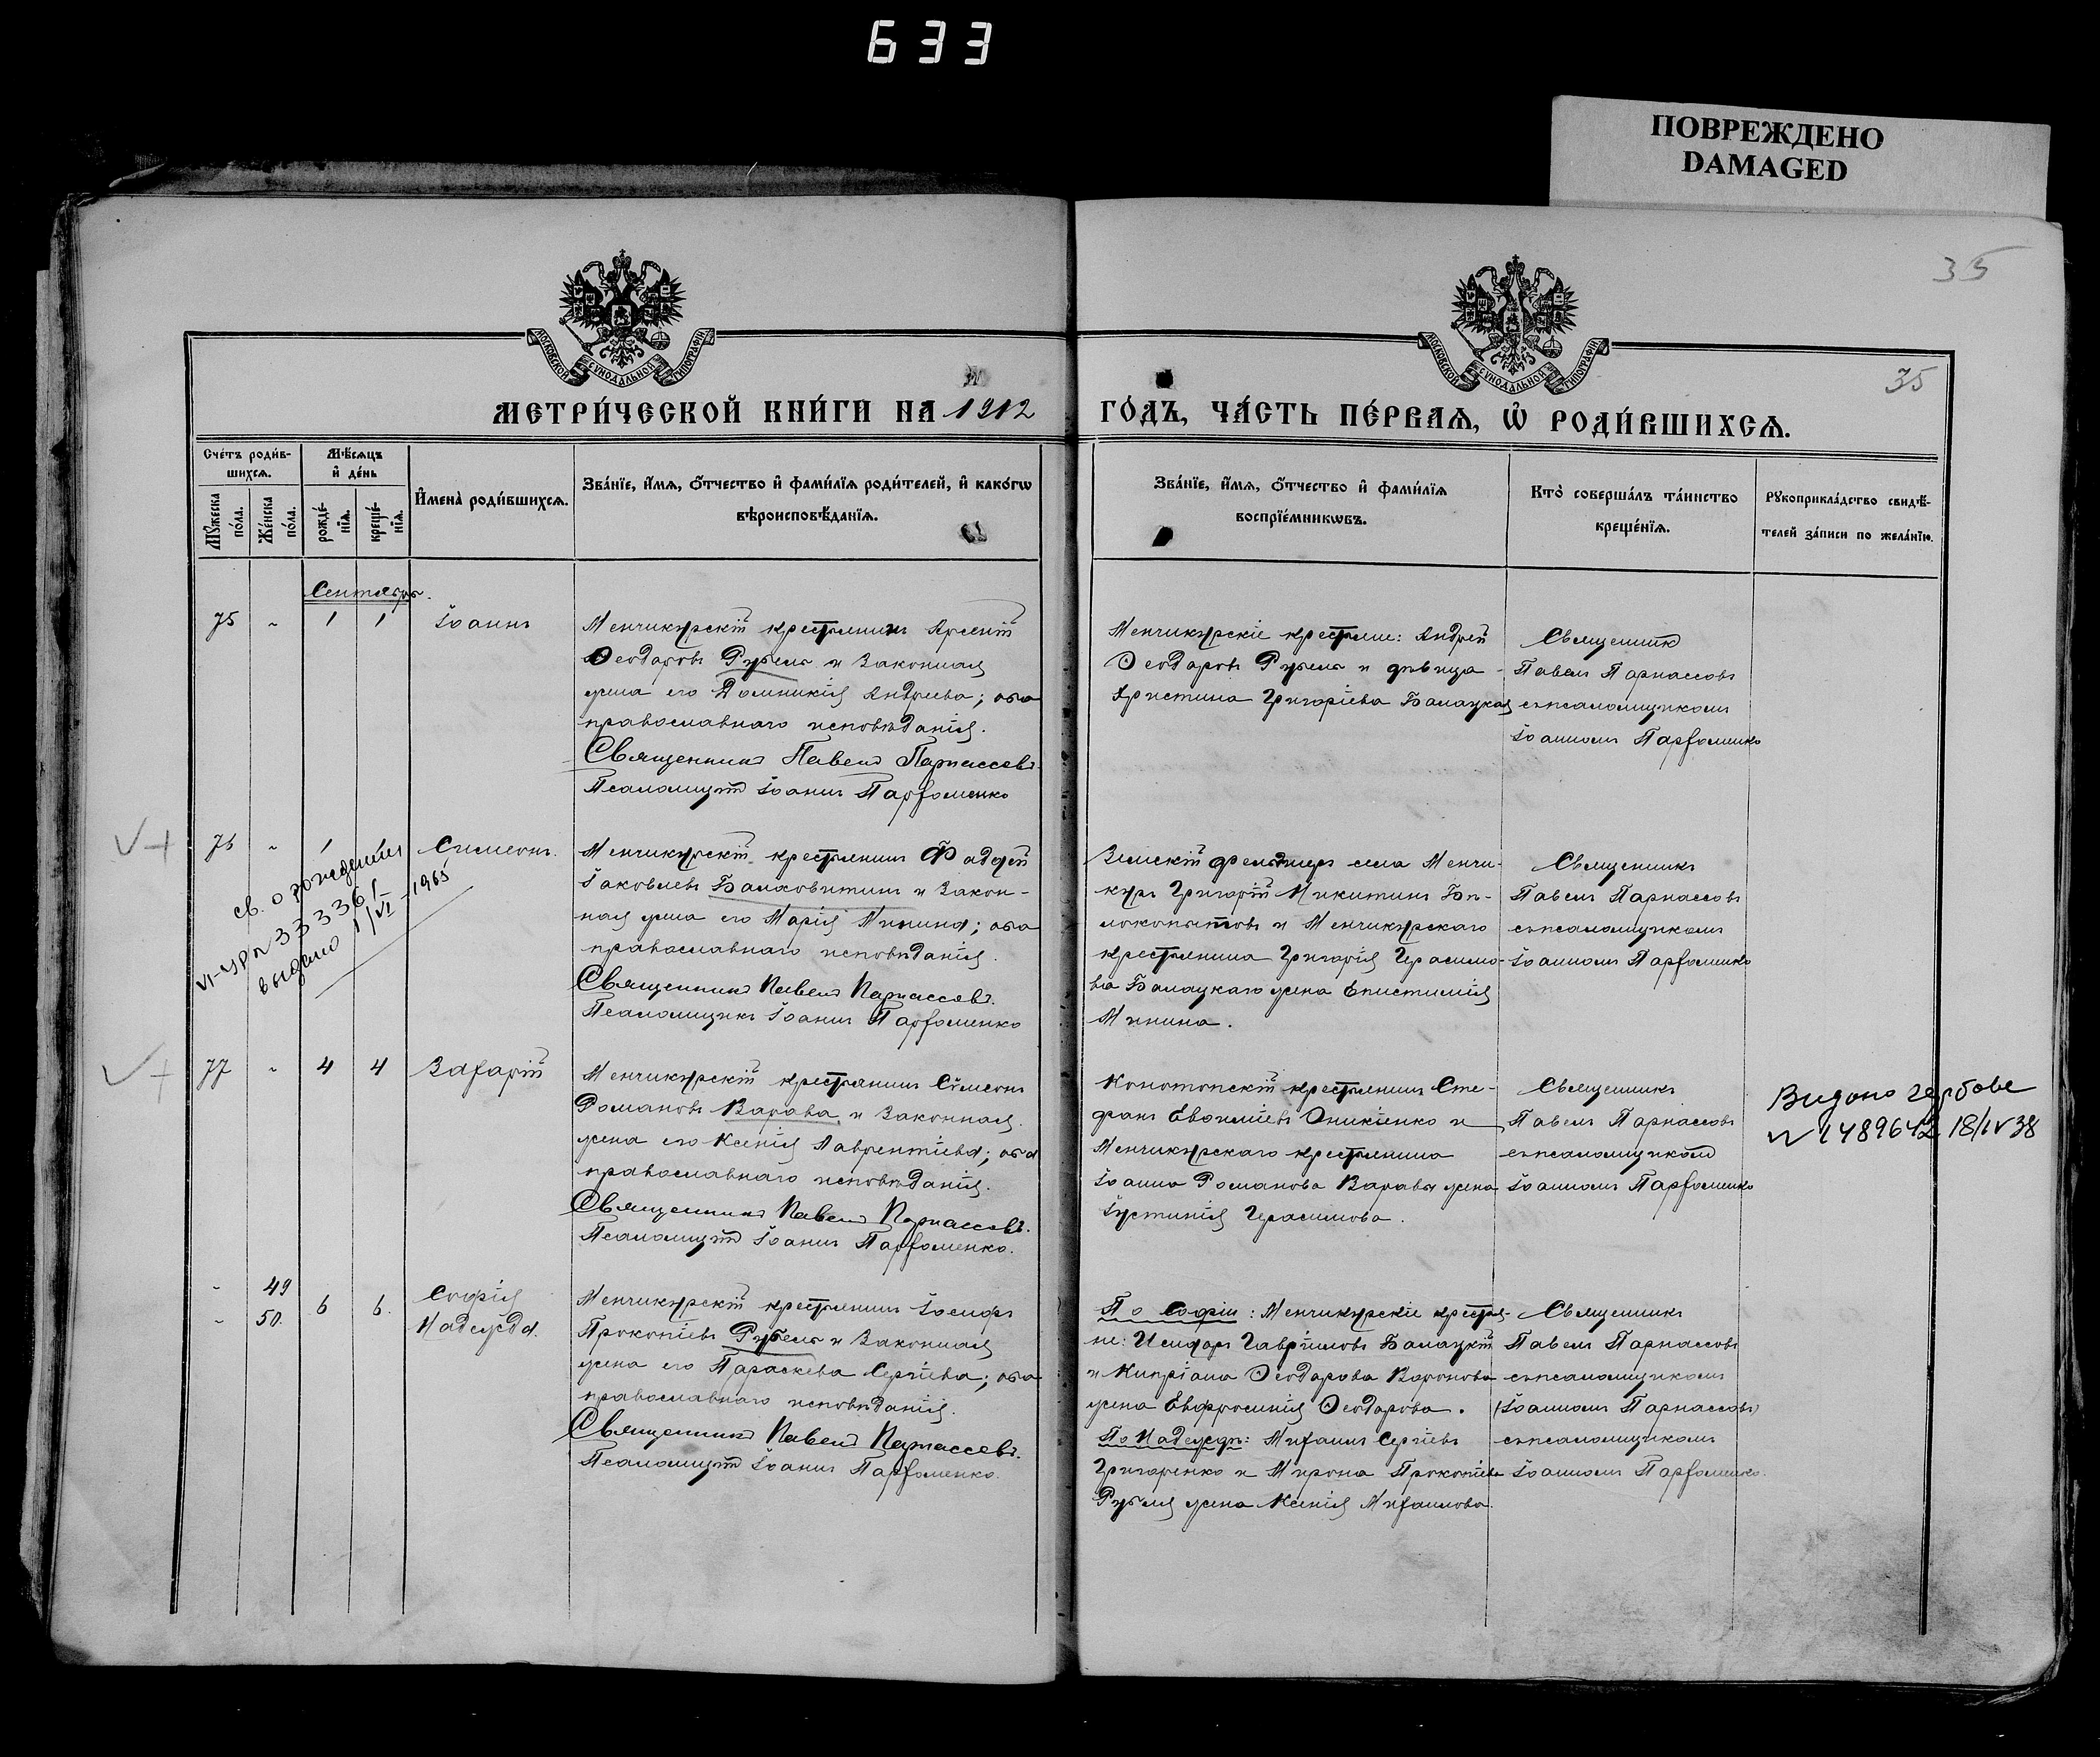 633
ПОВРЕЖДЕНО
DAMAGED
35
МОСКОВСКОЙ СѴНОДАЛЬНОЙ ТИПОГРАФІИ
МОСКОВСКОЙ СѴНОДАЛЬНОЙ ТИПОГРАФІИ
35
МЕТРИ́ЧЕСКОЙ КНИ́ГИ НА 1912
ГО́ДЪ, ЧА́СТЬ ПЕ́РВАѦ, Ѡ҆ РОДИ́ВШИХСѦ.
Сче́тъ роди́в-
шихсѧ.
Мѣ́сѧцъ
и҆ де́нь
Мꙋ́жеска
по́ла.
Же́нска
по́ла.
рожде́-
нїѧ.
креще́-
нїѧ.
И҆мена̀ роди́вшихсѧ.
Зва́нїе, и҆́мѧ, ѻ҆́тчество и҆ фами́лїѧ роди́телей, и҆ како́гѡ
вѣроисповѣ́данїѧ.
Зва́нїе, и҆́мѧ, ѻ҆́тчество и҆ фами́лїѧ
воспрїе́мникѡвъ.
Кто̀ соверша́лъ та́инство
креще́нїѧ.
Рꙋкоприкла́дство свидѣ́-
телей за́писи по жела́нїю.
Сентябрь.
75 " 1 1 Іоаннъ
Менчикурскій крестьянинъ Арсеній
Ѳеодоровъ Рубель и законная
жена его Домникія Андреева; оба
православнаго исповѣданія.
Священникъ Павелъ Парнассовъ.
Псаломщикъ Іоаннъ Парфоменко
Менчикурскіе крестьяне: Андрей
Ѳеодоровъ Рубель и дѣвица
Христина Григоріева Балацкая
Священникъ
Павелъ Парнассовъ
съ псаломщикомъ
Іоанномъ Парфоменко
76 " 1 1 Симеонъ.
св. о рождении
VI-УРП 333361
выдано 1/VI-1965
Менчикурскій крестьянинъ Фаддей
Іаковлевъ Балаховитинъ и закон-
ная жена его Марія Минина; оба
православнаго исповѣданія.
Священникъ Павелъ Парнассовъ.
Псаломщикъ Іоаннъ Парфоменко
Земскій фельдшеръ села Менчи-
куръ Григорій Никитинъ Бѣ-
локопытовъ и Менчикурскаго
крестьянина Григорія Герасимо-
ва Балацкаго жена Епистимія
Минина.
Священникъ
Павелъ Парнассовъ
съ псаломщикомъ
Іоанномъ Парфоменко
77 " 4 4 Захарій
Менчикурскій крестьянинъ Симеонъ
Романовъ Варава и законная
жена его Ксенія Лаврентіева; оба
православнаго исповѣданія.
Священникъ Павелъ Парнассовъ.
Псаломщикъ Іоаннъ Парфоменко.
Конотопскій крестьянинъ Сте-
фанъ Евѳиміевъ Оникіенко и
Менчикурскаго крестьянина
Іоанна Романова Варавы жена
Іустинія Герасимова.
Священникъ
Павелъ Парнассовъ
съ псаломщикомъ
Іоанномъ Парфоменко
Видано гербове
№ 1489642 18/IV 38
" 49 Софія
" 50. 6 6. Надежда.
Менчикурскій крестьянинъ Іосифъ
Прокопіевъ Рубель и законная
жена его Параскева Сергіева; оба
православнаго исповѣданія.
Священникъ Павелъ Парнассовъ.
Псаломщикъ Іоаннъ Парфоменко.
По Софіи: Менчикурскіе крестья-
не: Исидоръ Гавріиловъ Балацкій
и Кипріана Ѳеодорова Воронова
жена Евфросинія Ѳеодорова.
По Надеждѣ: Михаилъ Сергіевъ
Григоренко и Мирона Прокопіева
Рубля жена Ксенія Михаилова.
Священникъ
Павелъ Парнассовъ
съ псаломщикомъ
(Іоанномъ Парнассовъ)
съ псаломщикомъ
Іоанномъ Парфоменко.